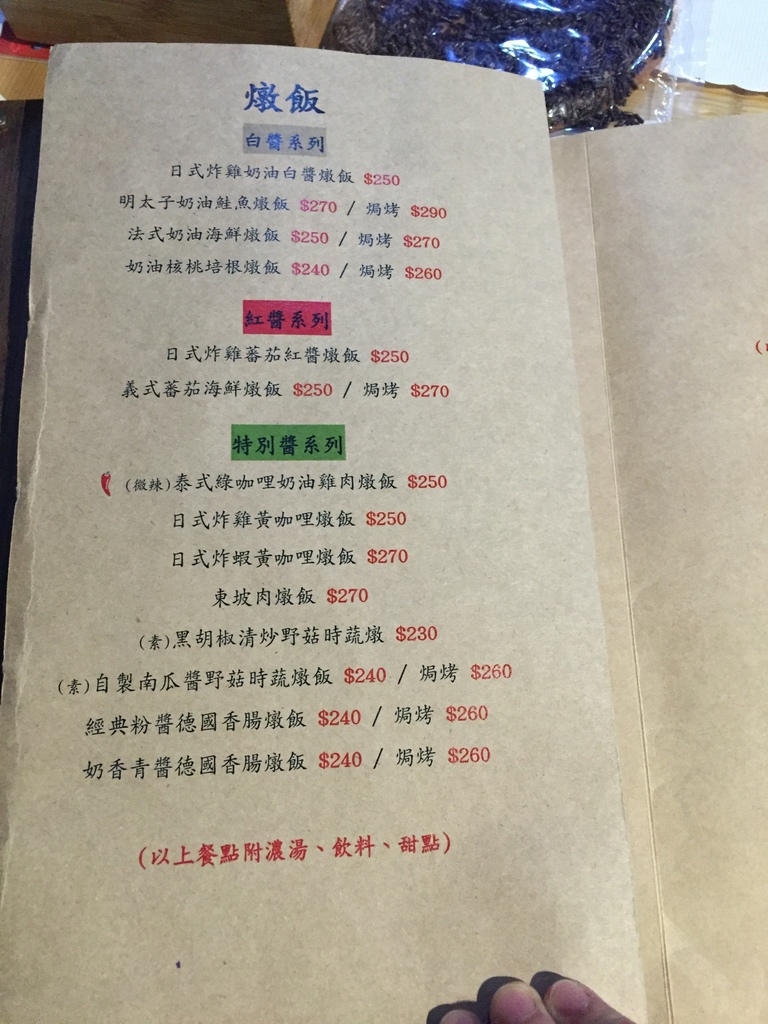 燉飯
白醬系列
日式炸雞奶油白醬燉飯 $250
明太子奶油鮭魚燉飯 $270 / 焗烤 $290
法式奶油海鮮燉飯 $250 / 焗烤 $270
奶油核桃培根燉飯 $240 / 焗烤 $260
紅醬系列
日式炸雞蕃茄紅醬燉飯 $250
義式蕃茄海鮮燉飯 $250 / 焗烤 $270
特別醬系列
(微辣)泰式綠咖哩奶油雞肉燉飯 $250
日式炸雞黃咖哩燉飯 $250
日式炸蝦黃咖哩燉飯 $270
東坡肉燉飯 $270
(素)黑胡椒清炒野菇時蔬燉 $230
(素)自製南瓜醬野菇時蔬燉飯 $240 / 焗烤 $260
經典粉醬德國香腸燉飯 $240 / 焗烤 $260
奶香青醬德國香腸燉飯 $240 / 焗烤 $260
(以上餐點附濃湯、飲料、甜點)